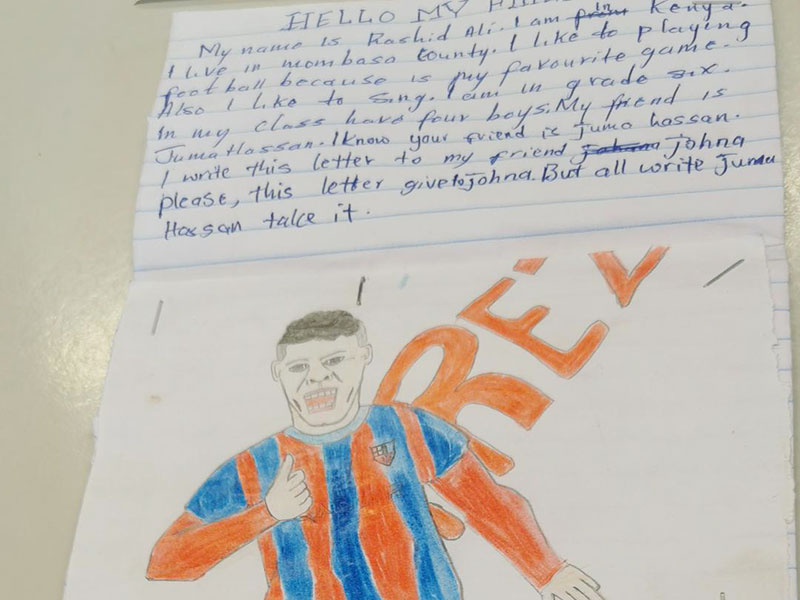 HELLO MY
My name is Rashid Ali. I am in Kenya.
I live in mombasa County. I like to playing
football because is my favourite game.
Also I like to sing. I am in grade six.
In my class have four boys. My friend is
Juma Hassan. I know your friend is Juma Hassan.
I write this letter to my friend johna
please, this letter give to johna. But all write Juma
Hassan take it.